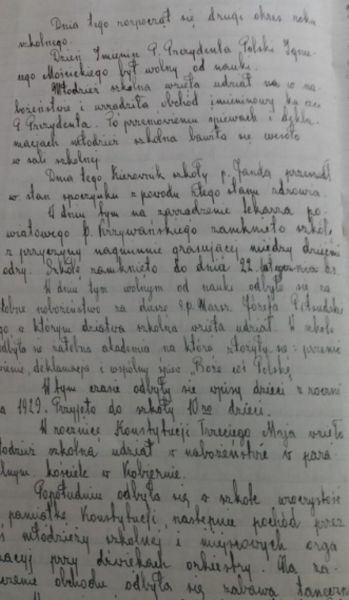 Dnia tego rozpoczął się drugi okres roku
szkolnego.
Dzień Imienin P. Prezydenta Polski Igna-
cego Mościckiego był wolny od nauki.
Młodzież szkolna wzięła udział w na-
bożeństwie i urządziła obchód imieninowy ku czci
P. Prezydenta. Po przemówieniu śpiewach i dekla-
macjach młodzież szkolna bawiła się wesoło
w sali szkolnej.
Dnia tego Kierownik szkoły p. Janda przeszedł
w stan spoczynku z powodu złego stanu zdrowia.
W dniu tym na zarządzenie lekarza po-
wiatowego p. zamknięto szkołę
z przyczyny nagminnie grasującej między dziećmi
odry. Szkołę zamknięto do dnia 22. b.r.
W dniu tym wolnym od nauki odbyło się
nabożeństwo za duszę ś.p. Marsz. Józefa Piłsudskie
go w którym dziatwa szkolna wzięła udział. W szkole
odbyła się żałobna akademia na którą złożyły się: przemó
wienie, deklamacja i wspólny śpiew "Boże coś Polskę"
W tym czasie odbyły się wpisy dzieci z roczni
ka 1929. Przyjęto do szkoły 10 dzieci.
W rocznicę Konstytucji Trzeciego Maja wzięła
młodzież szkolna udział w nabożeństwie w para
fialnym kościele w Kobiernie.
Popołudniu odbyła się w szkole uroczystość
pamiątkę Konstytucji, następnie pochód przez
młodzieży szkolnej i miejscowych orga
nizacyj przy dźwiękach orkiestry. Na za
kończenie obchodu odbyła się zabawa taneczn